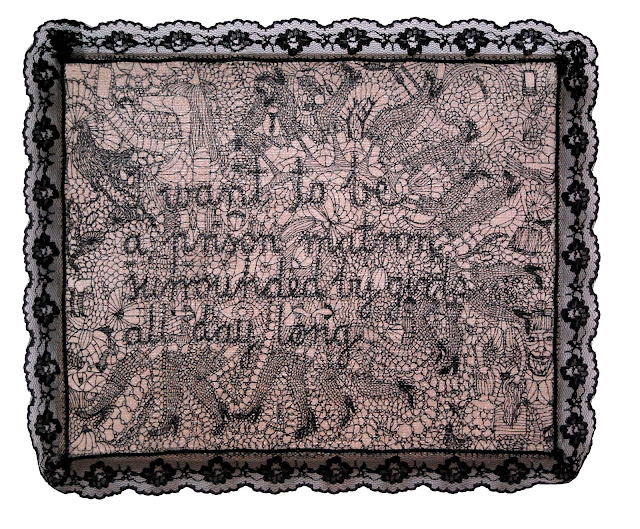 I want to be
a prison matron
surrounded by girls
all day long